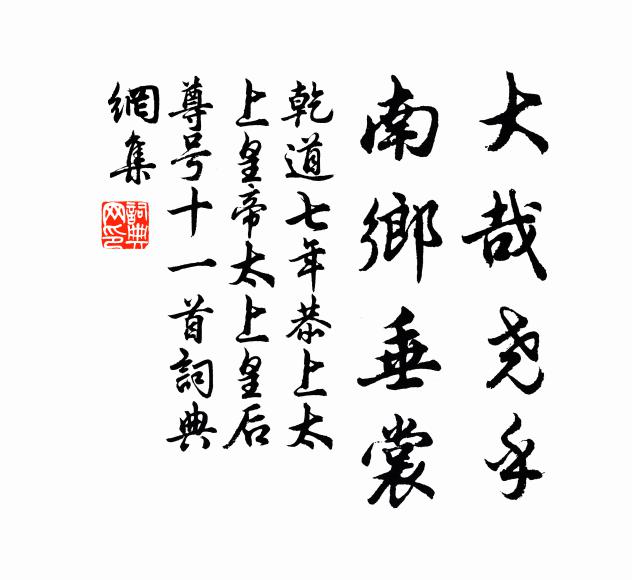 大哉尧乎
南鄉垂裳
乾道七年恭上太
上皇帝太上皇后
尊号十一首詞典
網集
詞典網印